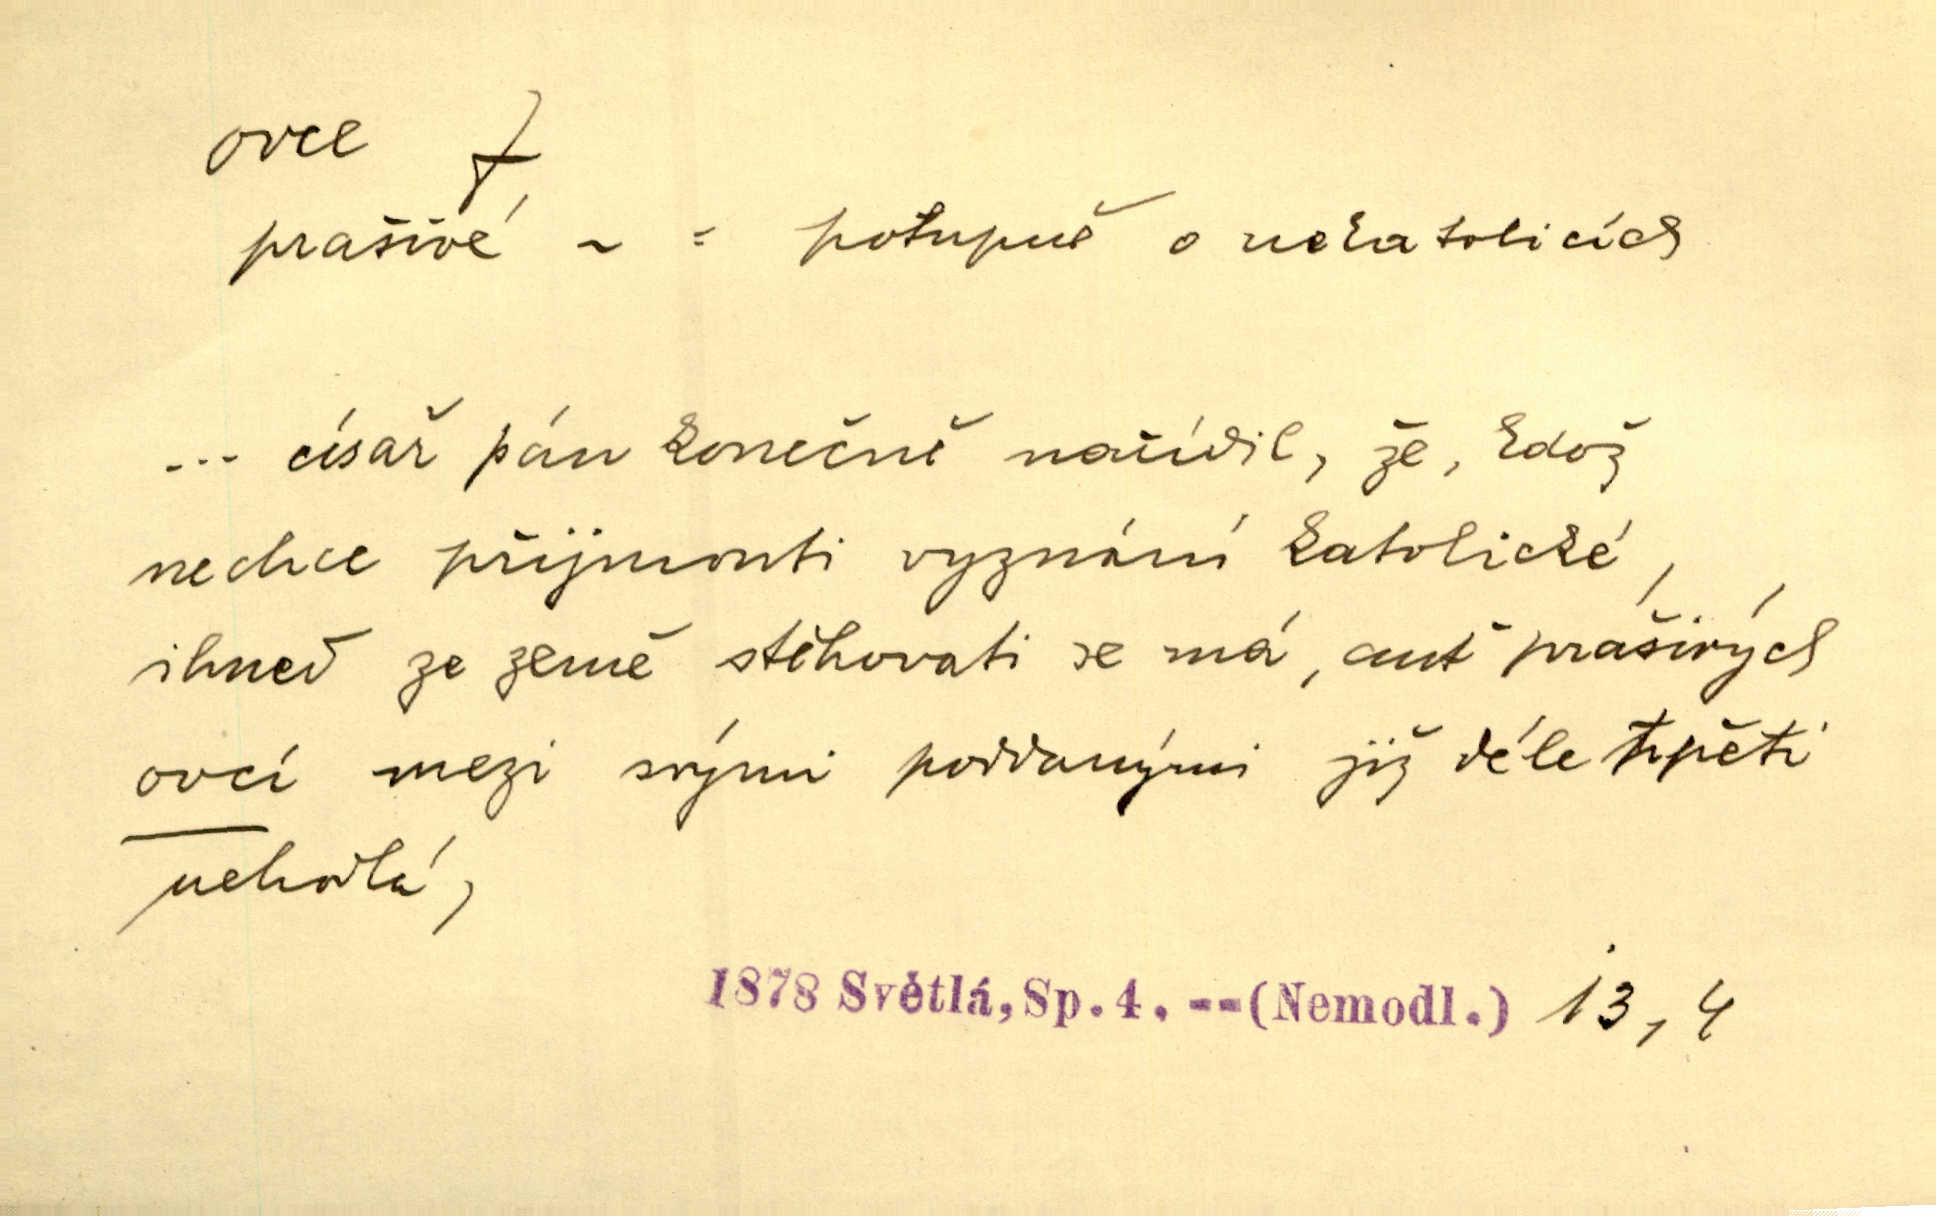 ovce f
prašivé ~ = potupně o nekatolicích
... císař pán konečně nařídil, že, kdož
nechce přijmouti vyznání katolické,
ihned ze země stěhovati se má, anť prašivých
ovcí mezi svými poddanými již déle trpěti
nehodlá,
1878 Světlá, Sp. 4. -- (Nemodl.) 13, 4